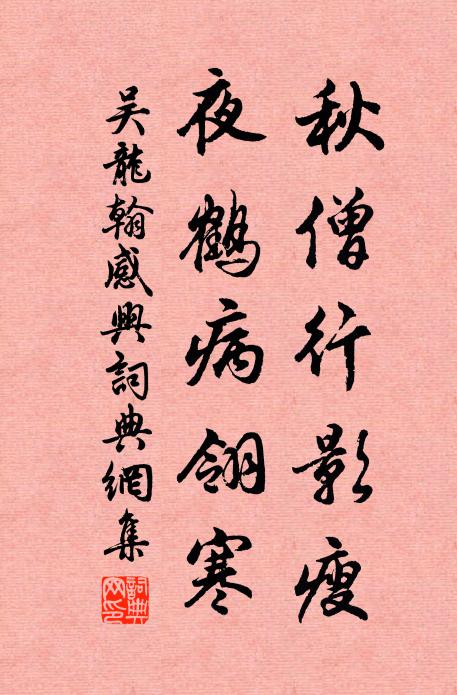 秋僧行影瘦
夜鶴病翎寒
吴龍翰感興詞典網集
詞典网印